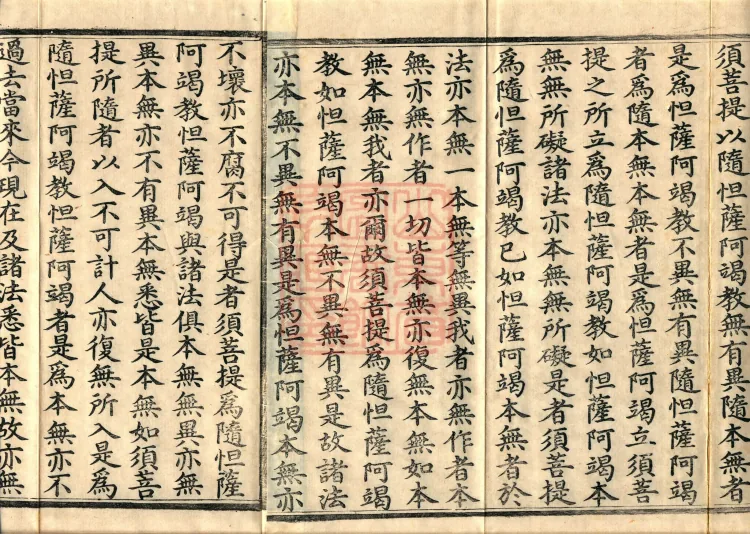 須菩提以隨怛薩阿竭教無有異隨本無者
是為怛薩阿竭教不異無有異隨怛薩阿竭
者為隨本無本無者是為怛薩阿竭立須菩
提之所立為隨怛薩阿竭教如怛薩阿竭本
無無所礙諸法亦本無無所礙是者須菩提
爲隨怛薩阿竭教已如怛薩阿竭本無者於
法亦本無一本無等無異我者亦無作者本
無亦無作者一切皆本無亦復無本無如本
無本無我者亦爾故須菩提爲隨怛薩阿竭
教如怛薩阿竭本無不異無有異是故諸法
亦本無不異無有異是爲怛薩阿竭本無亦
不壞亦不腐不可得是者須菩提爲隨怛薩
阿竭教怛薩阿竭與諸法俱本無無異亦無
異本無亦不有異本無悉皆是本無如須菩
提所隨者以入不可計人亦復無所入是爲
隨怛薩阿竭教怛薩阿竭者是爲本無亦不
過去當來今現在及諸法悉皆本無故亦無